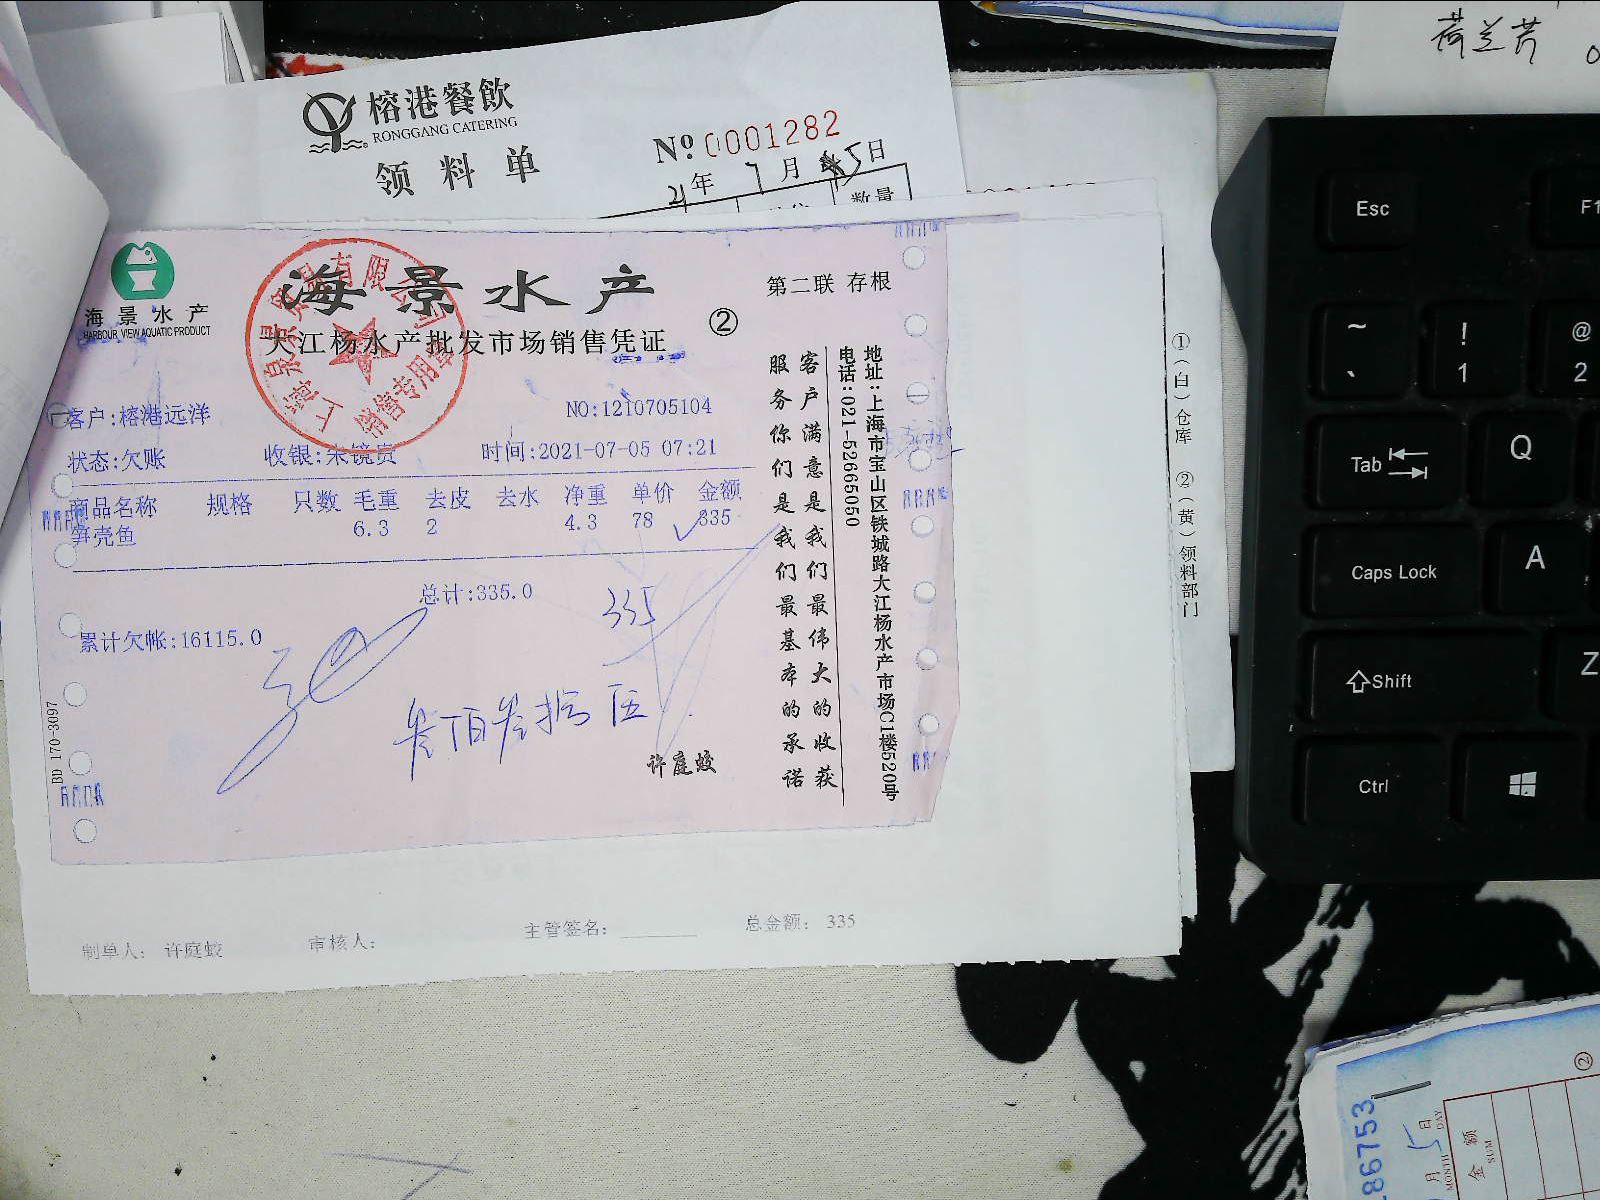 荷兰芹
榕港餐飲
RONGGANG CATERING
领料单
№ 0001282
21年 7月 5日
数量
海景水产
HARBOUR VIEW AQUATIC PRODUCT
海景水产
第二联 存根
大江杨水产批发市场销售凭证
②
销售专用章
客户:榕港远洋
NO:1210705104
状态:欠账
收银:朱镜贵
时间:2021-07-05 07:21
商品名称 规格 只数 毛重 去皮 去水 净重 单价 金额
笋壳鱼 6.3 2 4.3 78 335
总计:335.0
335
累计欠帐:16115.0
叁百叁拾伍
许庭蛟
BD 170-3097
客户满意是我们最伟大的收获
服务你们是我们最基本的承诺
地址:上海市宝山区铁城路大江杨水产市场C1楼520号
电话:021-52665050
①(白)仓库 ②(黄)领料部门
制单人: 许庭蛟
审核人:
主管签名:
总金额: 335
Esc
F1
~
`
!
1
@
2
Tab
Q
Caps Lock
A
Shift
Z
Ctrl
86753
月 5日
MONTH DAY
金额
SUM
②